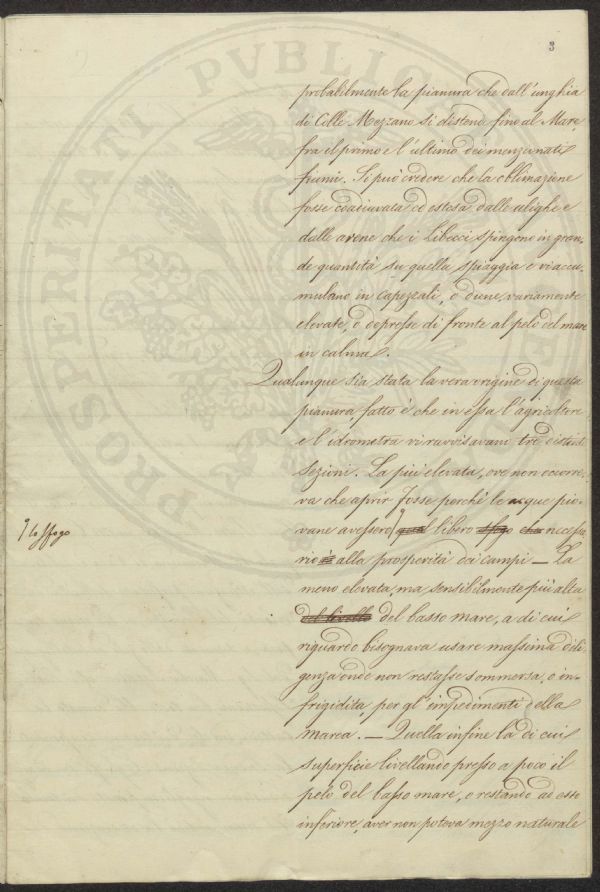 3
probabilmente la pianura che dall'unghia
di Colle Mezzano si distend fino al Mare
fra il primo e l'ultimo dei menzionati
fiumi. Si può credere che la
fosse coadiuvata ed estesa dalle alighe e
dalle arene che i Libecci spingono in gran-
de quantità su quella spiaggia e vi accu-
mulano in capezzali, o dune, variamente
elevate, o depresse di fronte al pelo del mare
in calma.
Qualunque sia stata la vera origine di questa
pianura, fatto è che in essa l'agricoltore
e l'idrometra vi ravvisavani tre distinti
sezioni. La più elevata, ove non occorre-
va che aprir Fosse perchè le acque pio-
vane avessero libero sfogo necessa
rio alla prosperità dei campi — La
lo sfogo
meno elevata, ma sensibilmente più alta
del livello del basso mare, a di cui
riguardo bisognava usare massima dili-
genza onde non restasse sommersa, o in-
frigidita, per gl'impedimenti della
marea. — Quella infine la di cui
superficie livellando presso a poco il
pelo del basso mare, o restando ad esso
inferiore, aver non poteva mezzo naturale
PROSPERITATI PUBLICAE